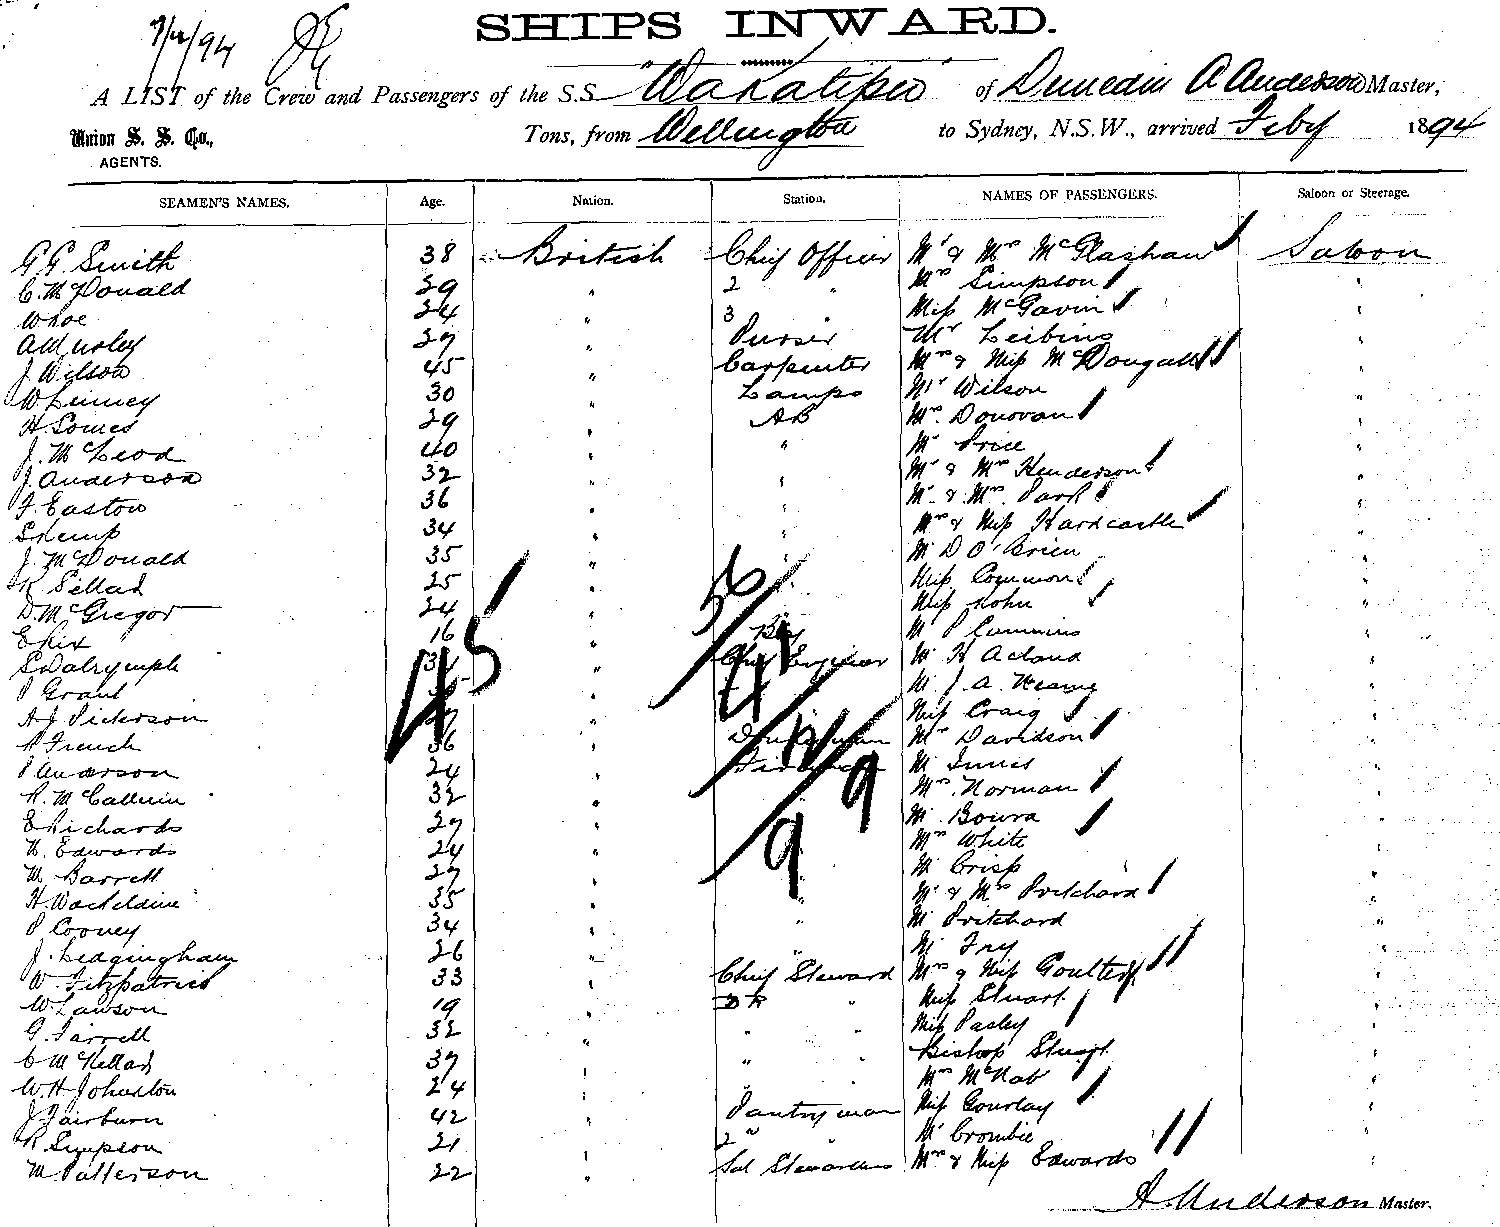 SHIPS INWARD.
A LIST of the Crew and Passengers of the S.S. "Wakatipu" of Dunedin A Anderson Master,
Union S. S. Co., Tons, from Wellington to Sydney, N.S.W., arrived Feby 1894
AGENTS.
SEAMEN'S NAMES. Age. Nation. Station. NAMES OF PASSENGERS. Saloon or Steerage.
G G Smith 38 British Chief Officer Mr & Mrs McGlashan Saloon
C. McDonald 29 " 2 " Mrs Simpson "
24 " 3 " Miss McGavin "
27 " Purser Mr Leibius "
J. Wilson 45 " Carpenter Mrs & Miss McDougall "
30 " Lamps Mr Wilson "
H Somes 29 " AB Mrs Donovan "
J. McLeod 40 " " Mr Price "
J. Anderson 32 " " Mr & Mrs Henderson "
F. Easton 36 " " Mr & Mrs Park "
34 " " Mrs & Miss Hardcastle "
J. McDonald 35 " " Mr D O'Brien "
R Sellars 25 " Miss Common "
D. McGregor 24 " Miss Kohn "
E Rix 16 " Boy M P Cummins "
S Dalrymple " Chief Engineer Mr H Acland "
P Grant " Mr J. A.
A J Dickerson " Miss Craig "
R French 36 " Donkeyman Mrs Davidson "
P Anderson 24 " Fireman Mr Innes "
R. McCallum 32 " Mrs Norman "
E Richards 27 " Mr Bowra "
H. Edwards 24 " Mrs White "
M Barrett 27 " Mr Crisp "
35 " " Mr & Mrs Pritchard "
P Cooney 34 " " Mr Pritchard "
J. Ledgingham 26 " " Mr Fry "
W. Fitzpatrick 33 " Chief Steward Mrs & Miss Goulter "
W Lawson 19 " " Miss Stuart "
G. Farrell 32 " " " Miss Pasley "
C McKellar 37 " " " Bishop Stuart "
W. H Johnston 24 " " " Mrs McNab "
J Fairburn 42 " Pantryman Miss Gourlay "
R Simpson 21 " 2 " " Mr Crombie "
M. Patterson 22 " Sal Stewardess Mrs & Miss Edwards "
A. Anderson Master.